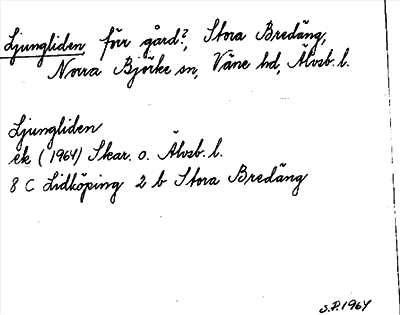 Ljungliden förr gård?, Stora Bredäng,
Norra Björke sn, Väne hd, Älvsb. l.
Ljungliden
ek (1964) Skar. o. Älvsb. l.
8 C Lidköping 2 b Stora Bredäng
S.P. 1964